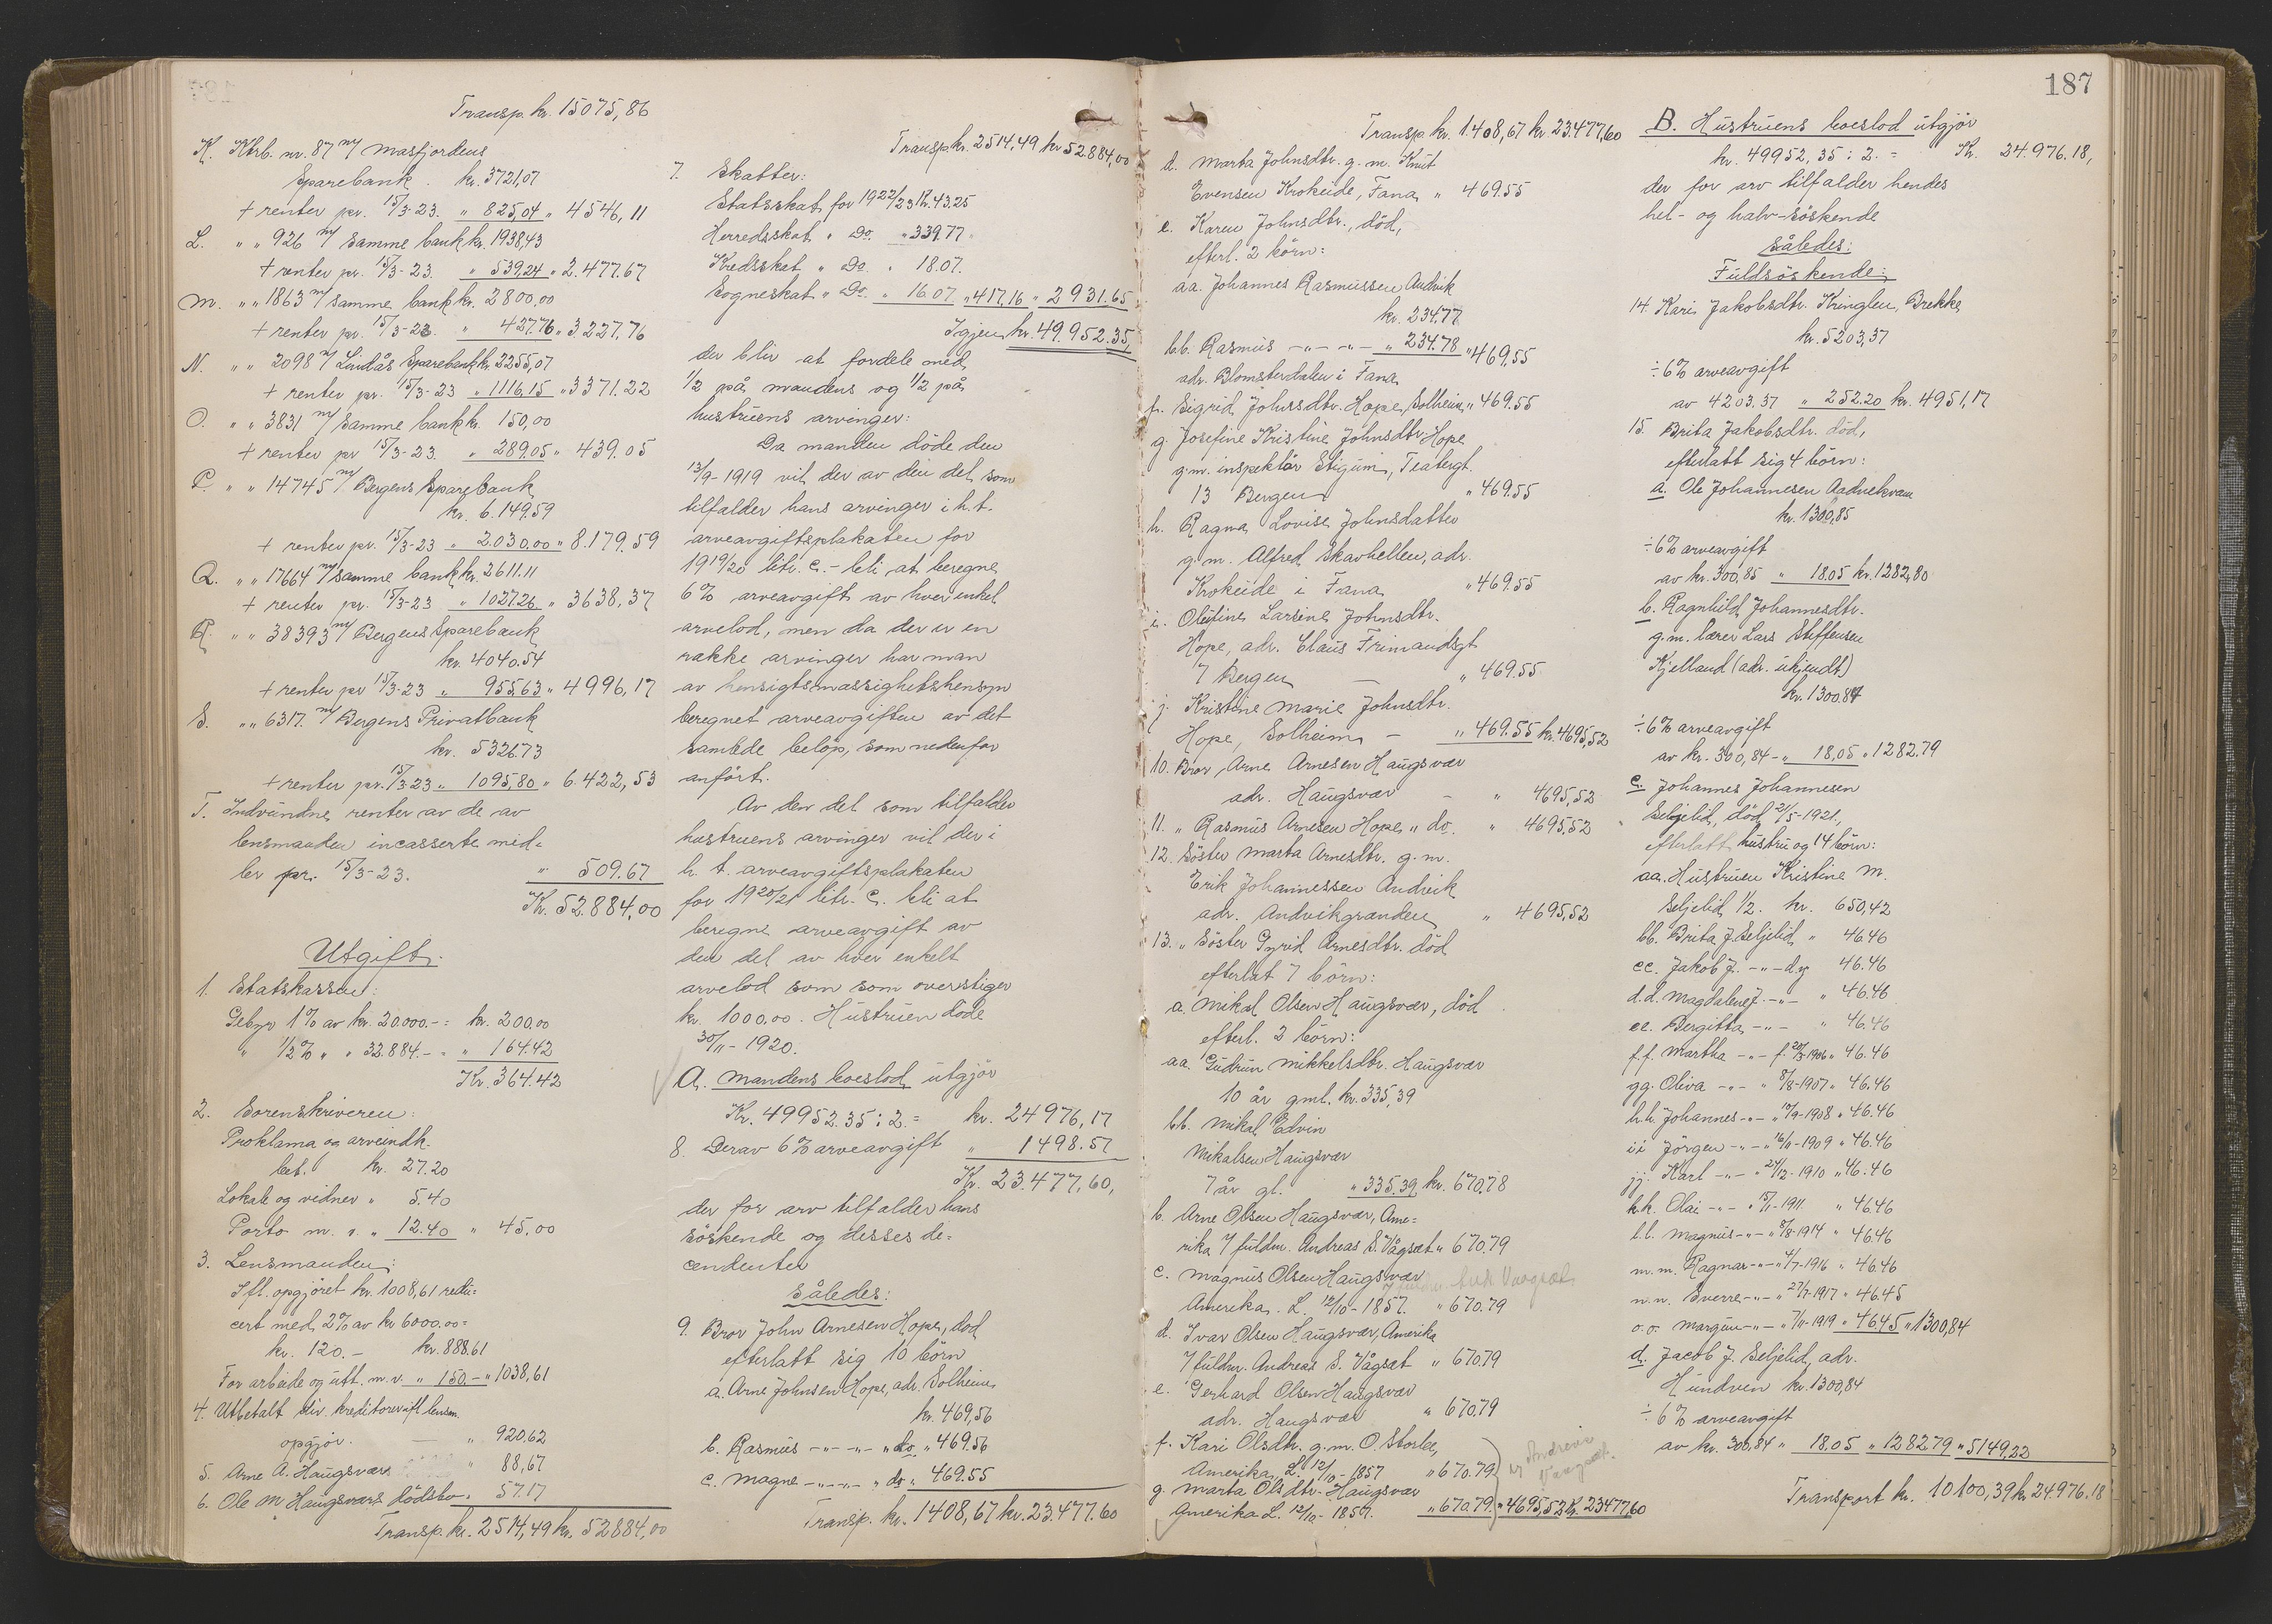 Transp. kr. 15075,86
K. Ktrb. nr. 87 m/ Masfjordens
Sparebank. kr. 3721,07
+ renter pr. 15/3-23. " 825,04 " 4546,11
L. " " 926 m/ samme bank kr. 1938,43
+ renter pr. 15/3-23. " 539,24 " 2.477.67
M. " " 1863 m/ samme bank kr. 2800,00
+ renter pr. 15/3-23. " 427.76 " 3.227,76
N. " " 2098 m/ Lindås Sparebank kr. 2255,07
+ renter pr. 15/3-23 " 1116,15 " 3371.22
O. " " 3831 m/ samme bank kr. 150,00
+ renter pr 15/3-23. " 289.05 " 439.05
P. " " 14745 m/ Bergens Sparebank
kr. 6.149.59
+ renter pr. 15/3-23 " 2.030.00 " 8.179.59
Q. " " 17664 m/ samme bank kr. 2611.11
+ renter pr. 15/3-23 " 1027.26 " 3638,37
R. " " 38393 m/ Bergens Sparebank
kr. 4040.54
+ renter pr 15/3-23 " 955.63 " 4996,17
S. " " 6317. m/ Bergens Privatbank
kr. 5326.73
+ renter pr. 15/3 23 " 1095,80 " 6.422,53
T. Indvundne renter av de av
lensmanden incasserte mid-
ler pr. 15/3-23. " 509.67
Kr. 52.884,00
Utgift.
1. Statskassen:
Gebyr 1% av kr. 20.000.- = kr. 200,00
" 1/2% " " 32.884.- = " 164.42
Kr. 364.42
2. Sorenskriveren:
Proklama og arveindk.
bet. kr. 27.20
Lokale og vidner " 5.40
Porto m. v. " 12.40 " 45,00
3. Lensmanden:
Ifl. opgjöret kr. 1008,61 redu-
cert med 2% av kr 6000.00=
kr. 120.- kr. 888.61
For arbeide og utl. m.v. " 150.- " 1038,61
4. Utbetalt div. kreditorer ifl lensm.
opgjör. — " 920,62
5. Arne A. Haugsvær " 88,67
6. Ole M Haugsværs dödsbo " 57.17
Transp. kr. 2514,49 kr. 52884,00
Transp. kr. 2514,49 kr 52884,00
7. Skatter:
Statsskat for 1922/23 kr. 43.25
Herredsskat " Do. " 339.77
Kredsskat " Do. " 18.07.
Sogneskat " Do. " 16.07 " 417,16 " 2931.65
Igjen kr. 49.952.35,
der blir at fordele med
1/2 på mandens og 1/2 på
hustruens arvinger:
Da manden döde den
13/9-1919 vil der av den del som
tilfalder hans arvinger i h. t.
arveavgiftsplakaten for
1919/20 litr. C.- bli at beregne
6% arveavgift av hver enkel
arvelod, men da der er en
række arvinger har man
av hensigtsmæssighetshensyn
beregnet arveavgiften av det
samlede belöp, som nedenfor
anfört.
Av den del som tilfalder
hustruens arvinger vil der i
h. t. arveavgiftsplakaten
for 1920/21 litr. C. bli at
beregne arveavgift av
den del av hver enkelt
arvelod som som overstiger
kr. 1000,00. Hustruen döde
30/11-1920.
A. Mandens boeslod utgjör
Kr. 49952.35 : 2.= kr. 24976,17
8. Derav 6% arveavgift " 1498.57
Kr. 23.477,60,
der for arv tilfalder hans
söskende og disses de-
cendenter
således:
9. Bror John Arnesen Hope, död
efterlatt sig 10 börn
a. Arne Johnsen Hope, adr. Solheim
kr. 469,56
b. Rasmus -"- -"- " do. " 469.56
c. Magne -"- -"- " do " 469.55
Transp. kr. 1408,67 kr. 23.477.60
187
Transp. kr. 1.408,67 kr. 23.477,60
d. Marta Johnsdtr. g. m. Knut
Evensen Krokeide, Fana " 469.55
e. Karen Johnsdtr., död,
efterl. 2 börn:
aa. Johannes Rasmussen Andvik
kr. 234.77
bb. Rasmus -"- -"- " 234.78 " 469.55
adr. Blomsterdalen i Fana
f. Sigrid Johnsdtr. Hope, Solheim " 469.55
g. Josefine Kristine Johnsdtr. Hope
g.m. inspektör Stigum, Teatergt.
13 Bergen " 469.55
h. Ragna Lovise Johnsdatter
g.m. Alfred Skarhellen, adr.
Krokeide i Fana " 469.55
i. Oletine Larsine Johnsdtr.
Hope, adr. Claus Frimandsgt
7 Bergen — " 469.55
j. Kristine Marie Johnsdtr.
Hope, Solheim - " 469.55 kr. 4695,52
10. Bror, Arne Arnesen Haugsvær
adr. Haugsvær - " 4695,52
11. " Rasmus Arnesen Hope " do. " 4695.52
12. Söster Marta Arnesdtr. g. m.
Erik Johannessen Andvik
adr. Andvikgrænden " 4695,52
13. " Söster Gyrid Arnesdtr. död
efterlat 7 börn:
a. Mikal Olsen Haugsvær, död
efterl. 2 börn:
aa. Gudrun Mikkelsdtr. Haugsvær
10 år gml. kr. 335,39
bb. Mikal Edvin
Mikalsen Haugsvær
7 år gl. " 335.39 kr. 670,78
b. Arne Olsen Haugsvær, Ame-
rika 7 fuldm. Andreas S. Vågsæt " 670.79
c. Magnus Olsen Haugsvær
Amerika. L. 12/10-1857. " 670.79
d. Ivar Olsen Haugsvær, Amerika
7 fuldm. Andreas S. Vågsæt " 670.79
e. Gerhard Olsen Haugsvær
adr. Haugsvær " 670.79
f. Kari Olsdtr. g. m. O. Storlee,
Amerika, L. 12/10-1857 " 670.79
g. Marta Olsdtr. Haugsvær
Amerika L. 12/10-1857. " 670.79. " 4695,52 kr. 23477,60
B. Hustruens boeslod utgjör
kr. 49952,35 : 2. = Kr. 24.976.18,
der for arv tilfalder hendes
hel- og halv-söskende
således:
Fuldsöskende:
14. Kari Jakobsdtr. Kringlen, Brekke
kr. 5203,37
÷ 6% arveavgift
av 4203.37 " 252.20 kr. 4951,17
15. Brita Jakobsdtr. död,
efterlatt sig 4 börn:
a. Ole Johannesen Aadnekvam
kr. 1300,85
÷ 6% arveavgift
av kr. 300,85 " 18.05 kr. 1282,80
b. Ragnhild Johannesdtr.
g.m. lærer Lars Steffensen
Kjelland (adr. ukjendt)
kr. 1300.84
÷ 6% arveavgift
av kr. 300,84 - " 18,05 " 1282.79
c. Johannes Johannesen
Seljelid, död 21/5-1921,
efterlatt hustru og 14 börn:
aa. Hustruen Kristine M.
Seljelid 1/2. kr. 650,42
bb. Brita J. Seljelid " 46.46
cc. Jakob J. -"- d.y. 46.46
d.d. Magdalene J. -"- " 46.46
ee. Bergitta -"- " 46.46
f.f. Martha -"- f. 20/3-1906 " 46.46
gg. Oliva -"- " 8/8-1907 " 46.46
h.h. Johannes -"- " 10/9-1908 " 46.46
ii Jörgen -"- " 16/11-1909 " 46.46
jj. Karl -"- " 24/12-1910 " 46.46
k.k. Olai -"- " 15/11-1911 " 46.46
l.l. Magnus -"- " 8/8-1914 " 46.46
m.m. Ragnar -"- " 4/7-1916 " 46.46
n.n. Sverre -"- " 27/7-1917 " 46.45
o.o. Margun -"- " 7/11-1919 " 46.45 " 1300,84
d. Jacob J. Seljelid, adr.
Hundven kr. 1300,84
÷ 6% arveavgift
av kr. 300,84 " 18.05 " 1282.79 " 5149,22
Transport kr. 10100,39 kr 24.976.18